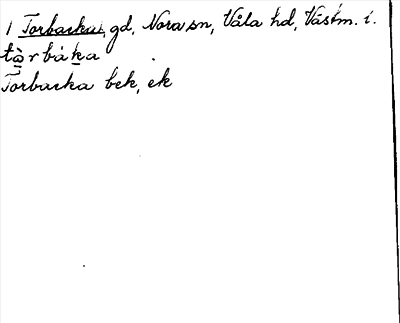 1 Torbacka, gd, Nora sn, Våla hd, Västm. l.
tå̀rbáka
Torbacka bek, ek